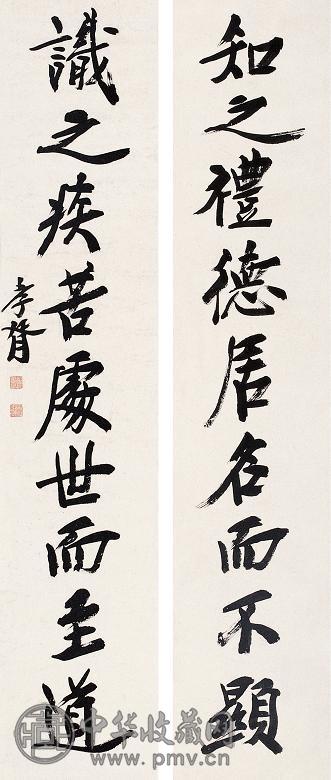 知之禮德居名而不顯
識之疾苦處世而至道
孝胥
中华收藏网
www.pmv.cn